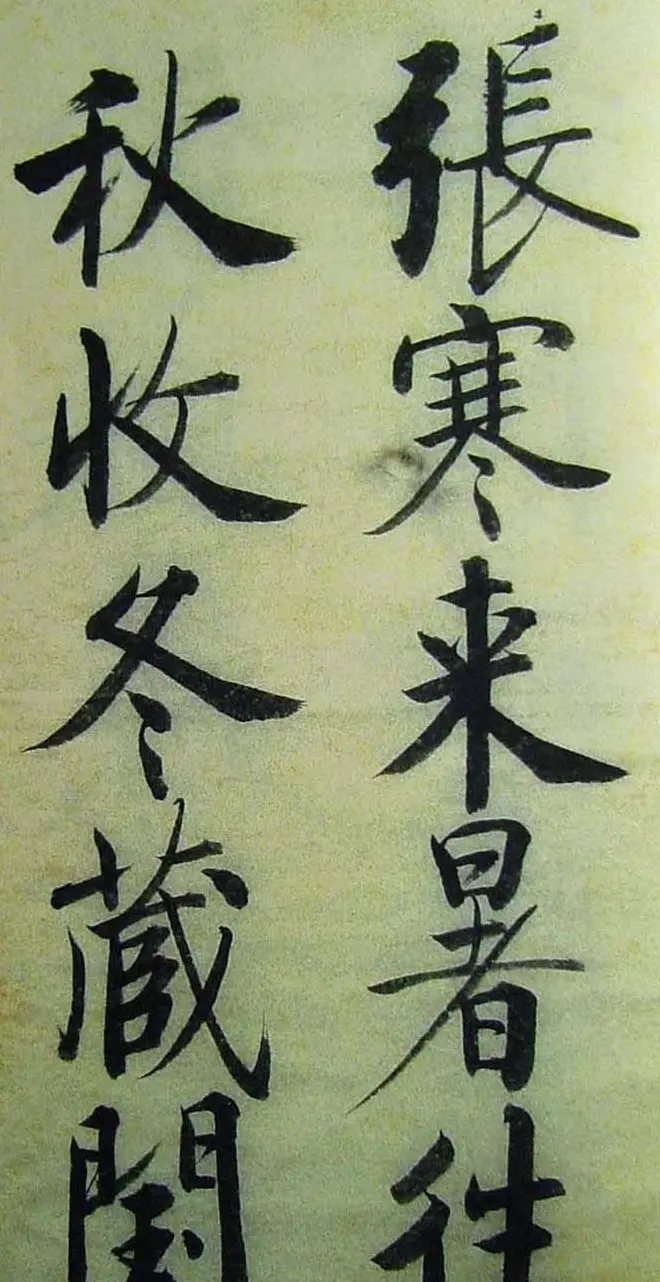 張寒来暑往
秋收冬蔵閏